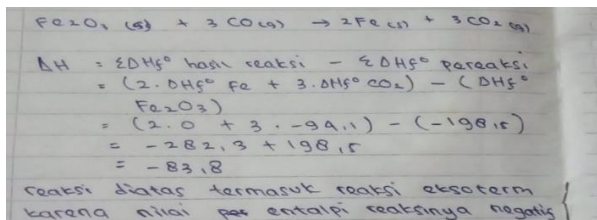 Fe2O3 (s) + 3 CO (g) → 2 Fe (s) + 3 CO2 (g)
ΔH = ΣDHf° hasil reaksi - ΣDHf° pereaksi
= (2. DHf° Fe + 3. ΔHf° CO2) - (DHf°
Fe2O3)
= (2.0 + 3. -94,1) - (-198,5)
= -282,3 + 198,5
= -83,8
reaksi diatas termasuk reaksi eksoterm
karena nilai per entalpi reaksinya negatif